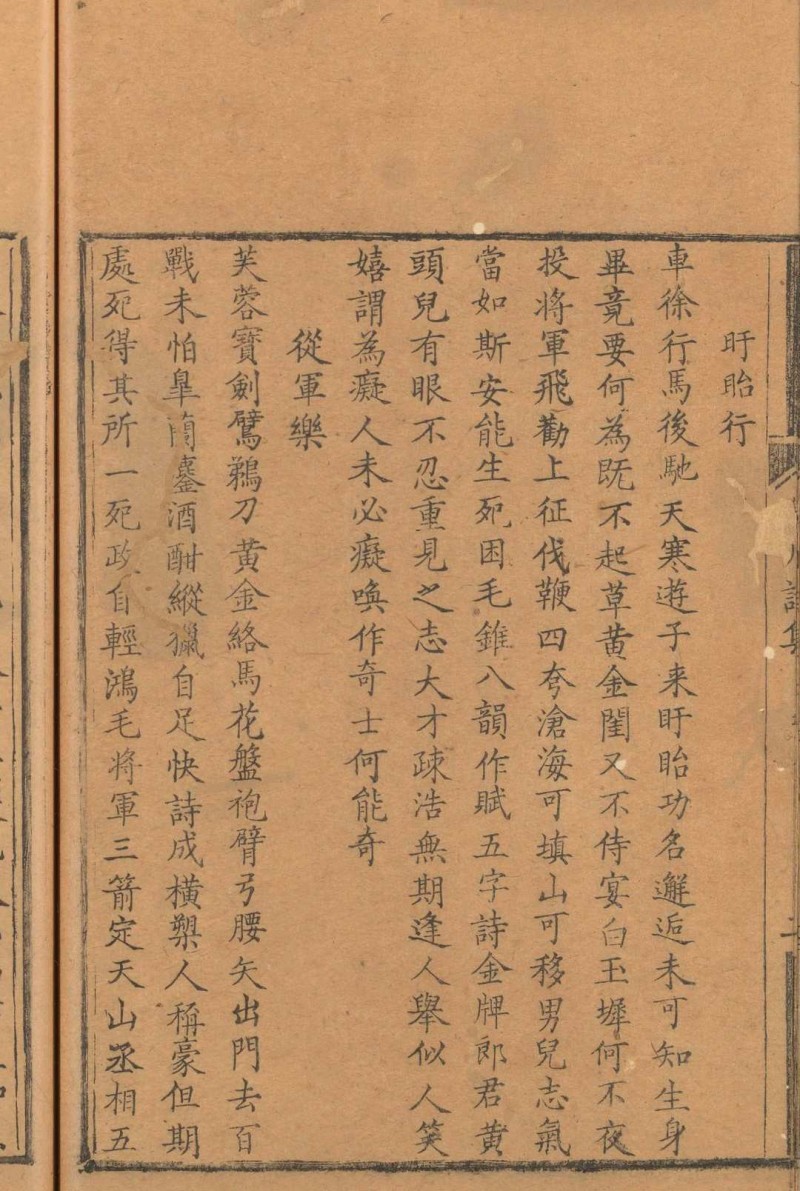 盱眙行
車徐行馬後馳天寒遊子来盱眙功名邂逅未可知生身
畢竟要何為既不起草黄金閨又不侍宴白玉墀何不夜
投將軍飛勸上征伐鞭四夸滄海可塡山可移男兒志氣
當如斯安能生死困毛錐八韻作賦五字詩金牌郎君黄
頭兒有眼不忍重見之志大才疎浩無期逢人舉似人笑
嬉謂為癡人未必癡喚作奇士何能奇
從軍樂
芙蓉寳劍鷿鵜刀黄金絡馬花盤袍臂弓腰矢出門去百
戰未怕臯蘭鏖酒酣縱獵自足快詩成橫槊人稱豪但期
處死得其所一死政自輕鴻毛將軍三箭定天山丞相五
詩集